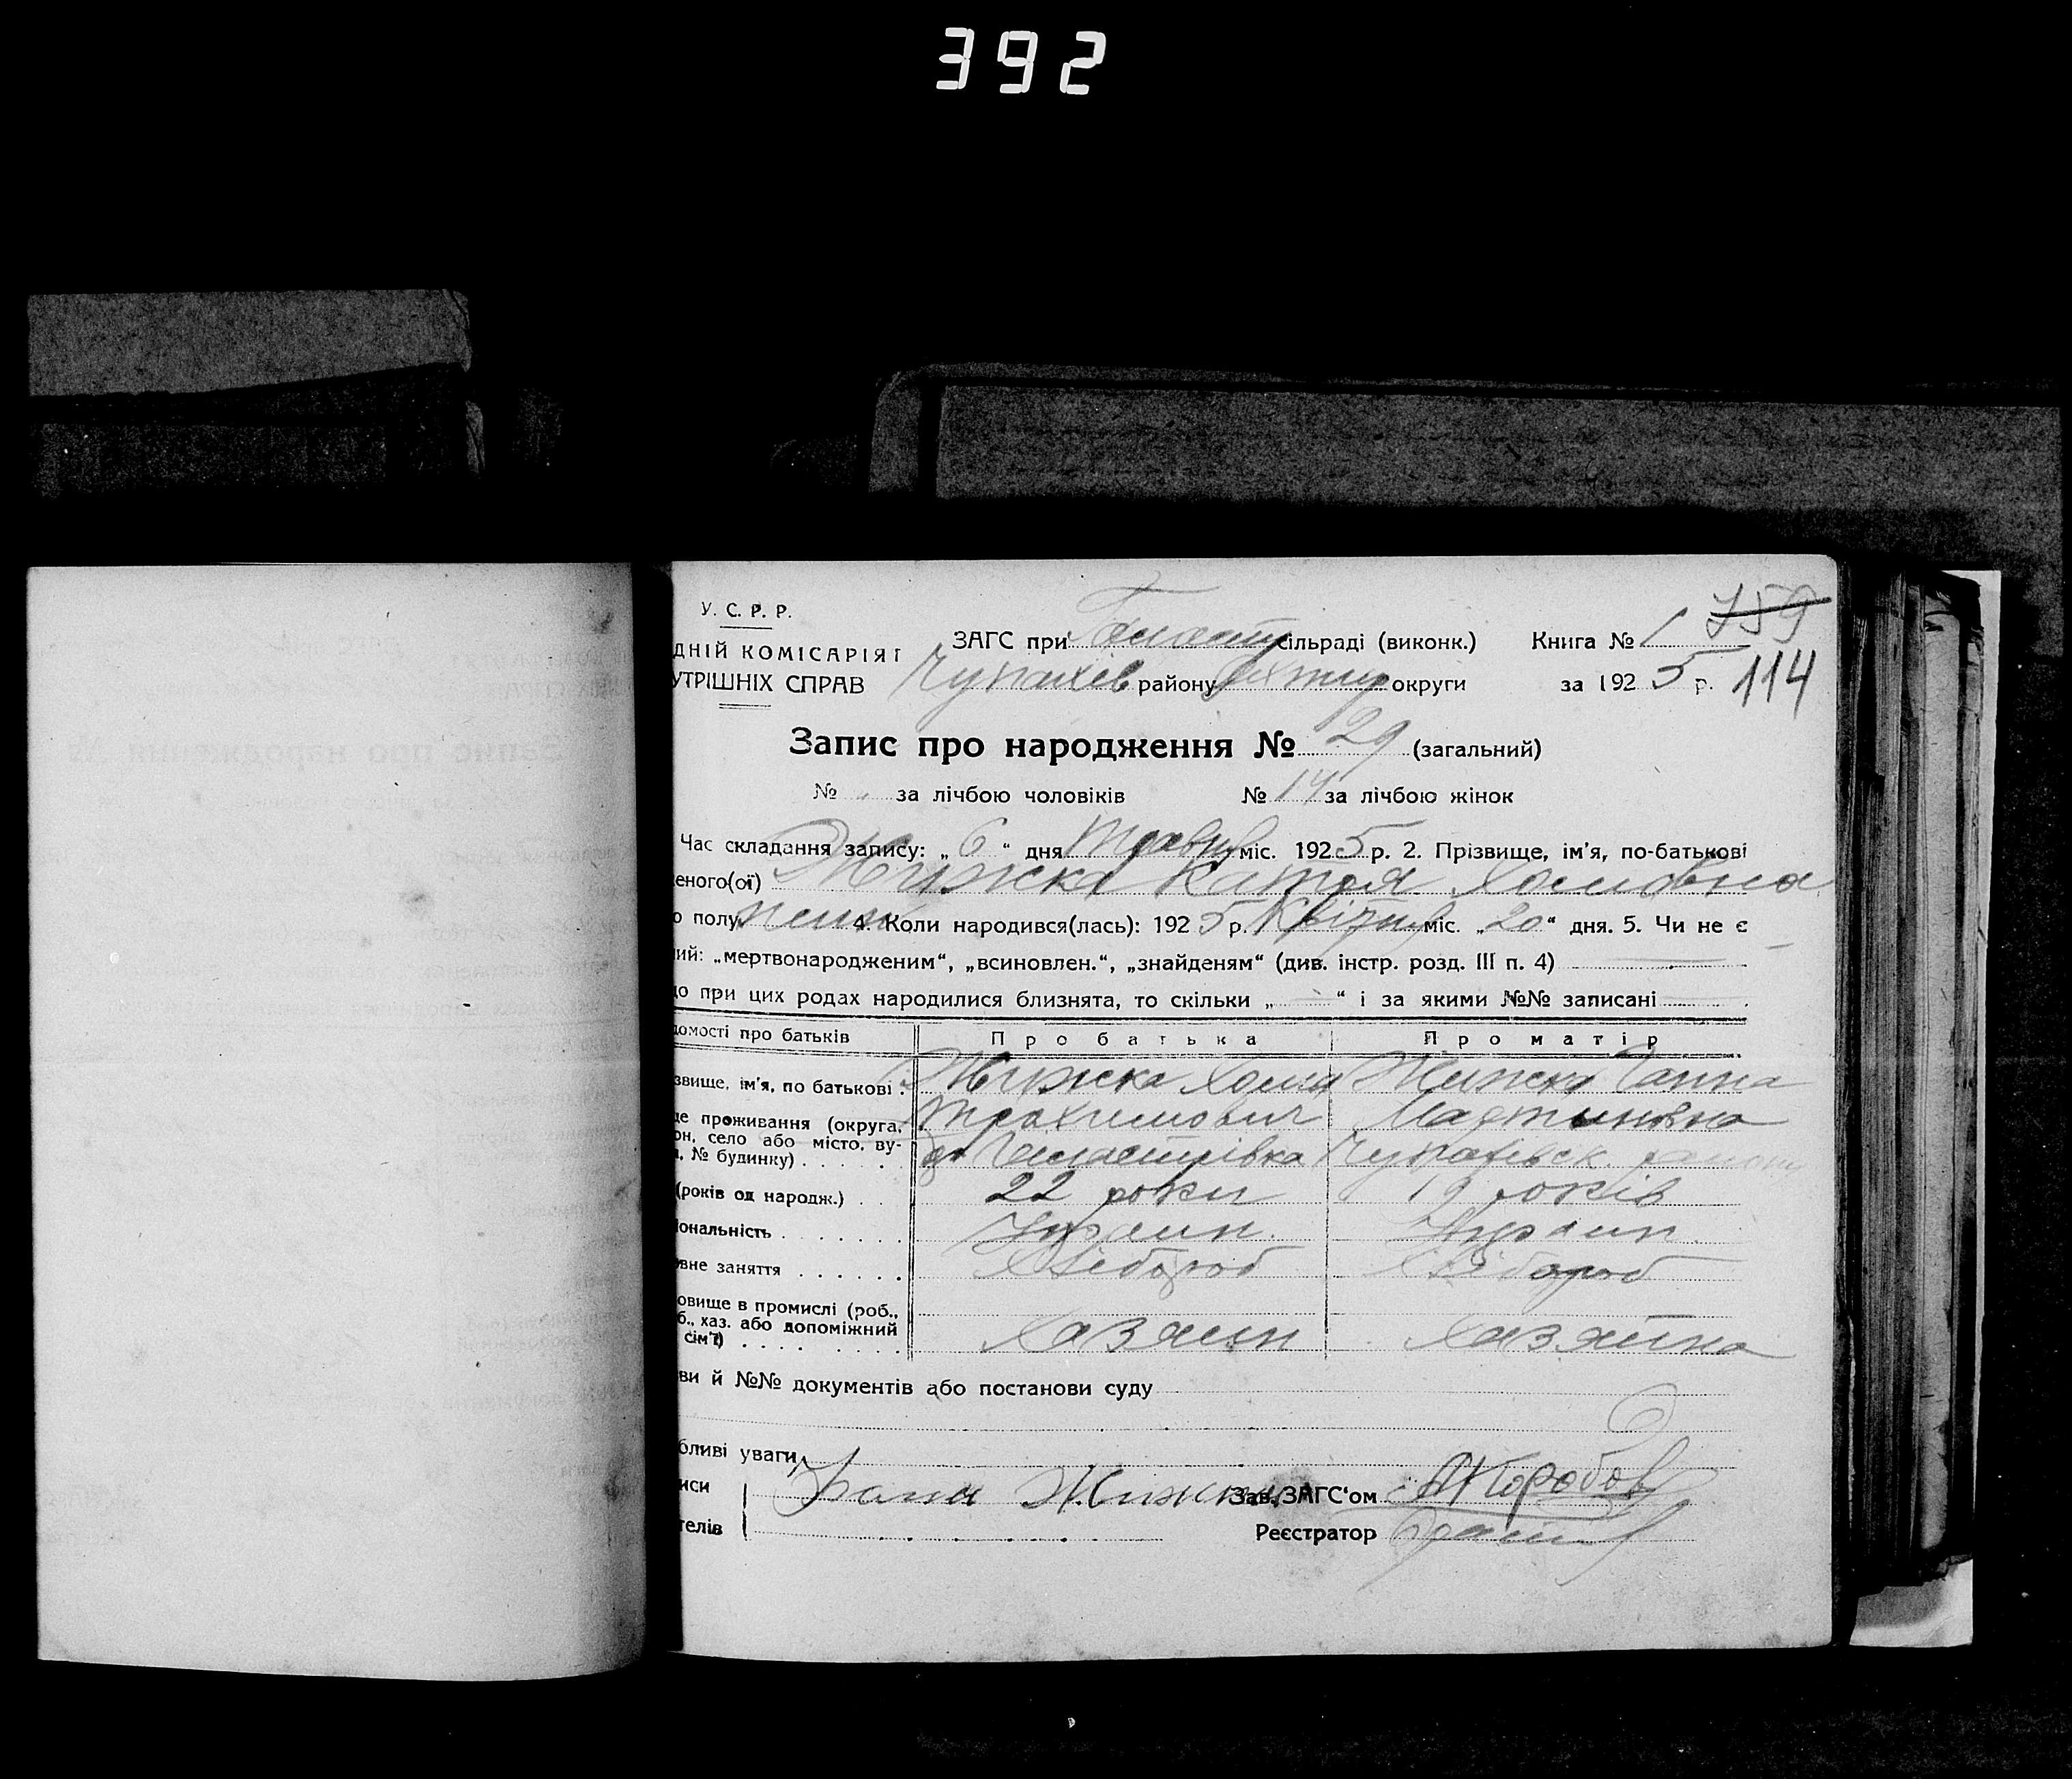 392
У. С. Р. Р.
ДНІЙ КОМІСАРІЯТ
УТРІШНІХ СПРАВ
759
ЗАГС при сільраді (виконк.) Книга № 1
Чупахів району Охтир округи за 1925 р. 114
Запис про народження № 29 (загальний)
№ за лічбою чоловіків № 14 за лічбою жінок
Час складання запису: „6“ дня Травня міс. 1925 р. 2. Прізвище, ім'я, по-батькові
еного(ої) Жижка Катря Хомовна
о полу жін 4. Коли народився(лась): 1925 р. Квітня міс. „20“ дня. 5. Чи не є
ий: „мертвонародженим“, „всиновлен.“, „знайденям“ (див. інстр. розд. III п. 4)
що при цих родах народилися близнята, то скільки „ “ і за якими №№ записані
домості про батьків Про батька Про матір
звище, ім'я, по батькові Жижка Хома Жижка Ганна
Трохимович Мартиновна
де проживання (округа,
он, село або місто, ву-
, № будинку) Чупахівск. району
(років од народж.) 22 роки 19 років
іональність Украин. Украин.
вне заняття Хлібороб Хлібороб
овище в промислі (роб.,
б., хаз. або допоміжний
сім'ї) Хазяин Хазяйка
ви й №№ документів або постанови суду
бливі уваги
иси Жижка Зав. ЗАГС'ом Коробов
телів Реєстратор